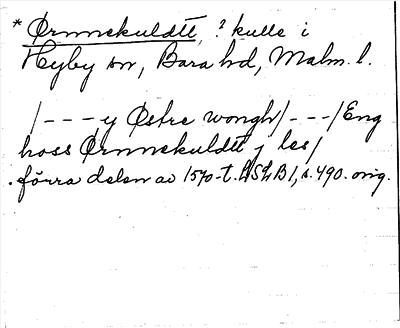 * Ørnnekuldtt, ? kulle i
Hyby sn, Bara hd, Malm. l.
/---y Østre wongh/---/Eng
hoss Ørnnekuldtt y les/
förra delen av 1570-t. LSLB 1, s. 490. orig.